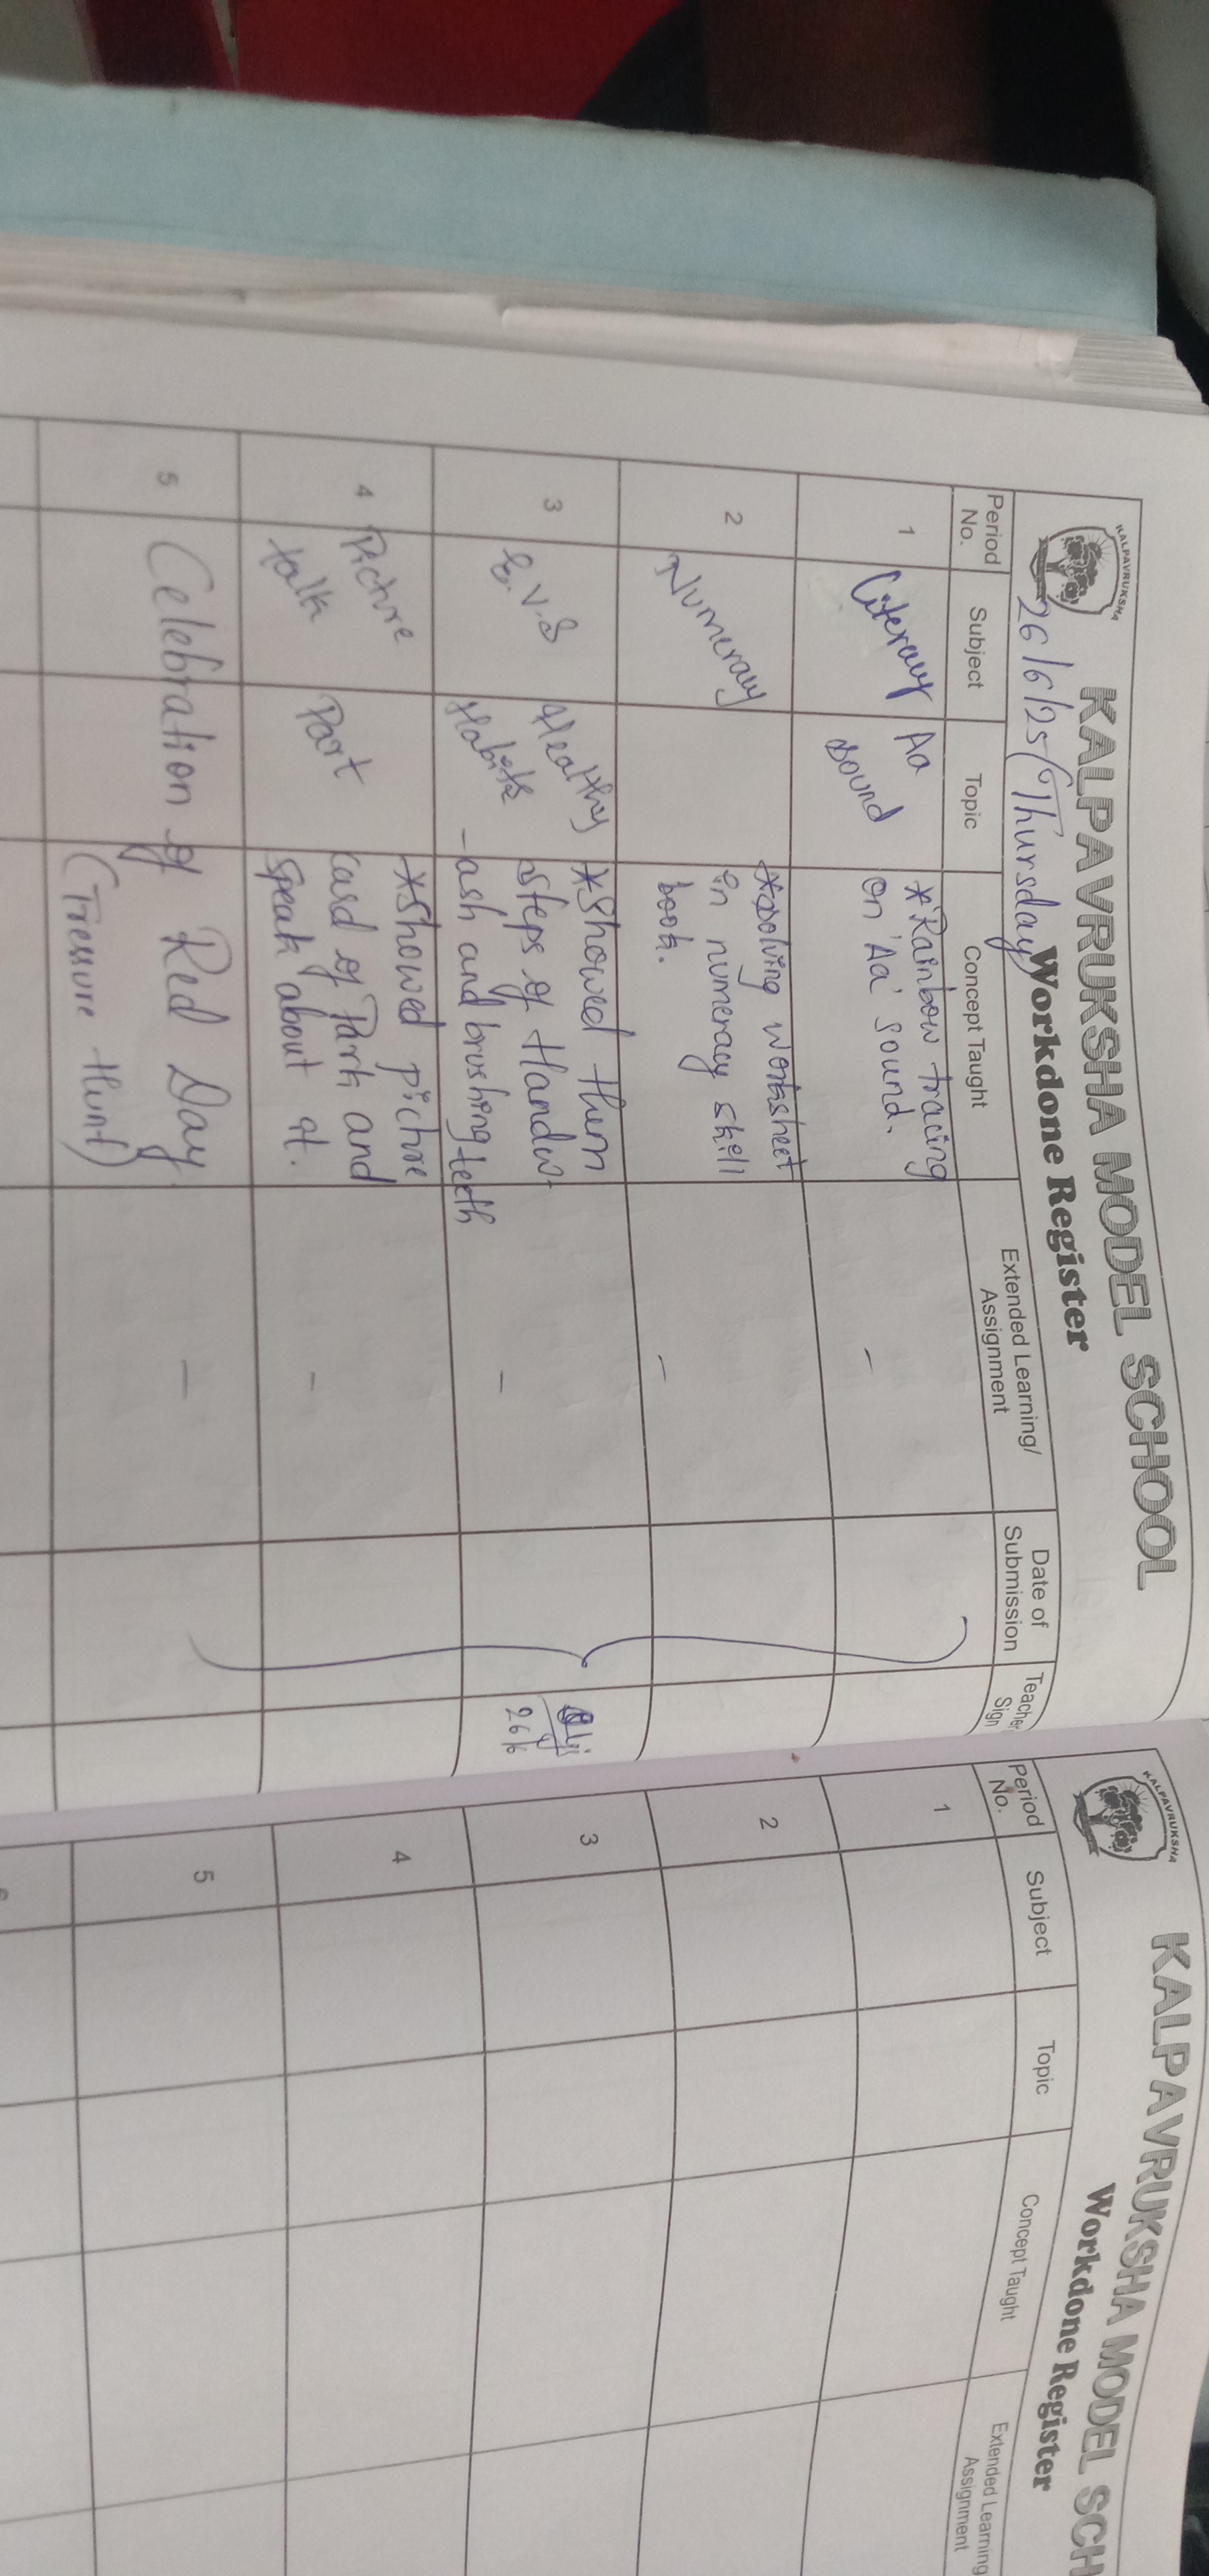 KALPAVRUKSHA
KALPAVRUKSHA MODEL SCHOOL
Workdone Register
26/6/25/Thursday
Period No.
Subject
Topic
Concept Taught
Extended Learning/ Assignment
Date of Submission
Teacher Sign
1
Literacy
Aa
sound
*Rainbow tracing
on 'Aa' sound.
-
2
Numeracy
*Solving worksheet
in numeracy skill
book.
-
3
E.V.S
Healthy
Habits
*Showed them
steps of Handw-
-ash and brushing teeth
-
26/6
4
Picture
talk
Part
*Showed picture
card of Park and
speak about it.
-
5
Celebration of Red Day
(Tressure Hunt)
-
KALPAVRUKSHA
KALPAVRUKSHA MODEL SCH
Workdone Register
Period No.
Subject
Topic
Concept Taught
Extended Learning
Assignment
1
2
3
4
5